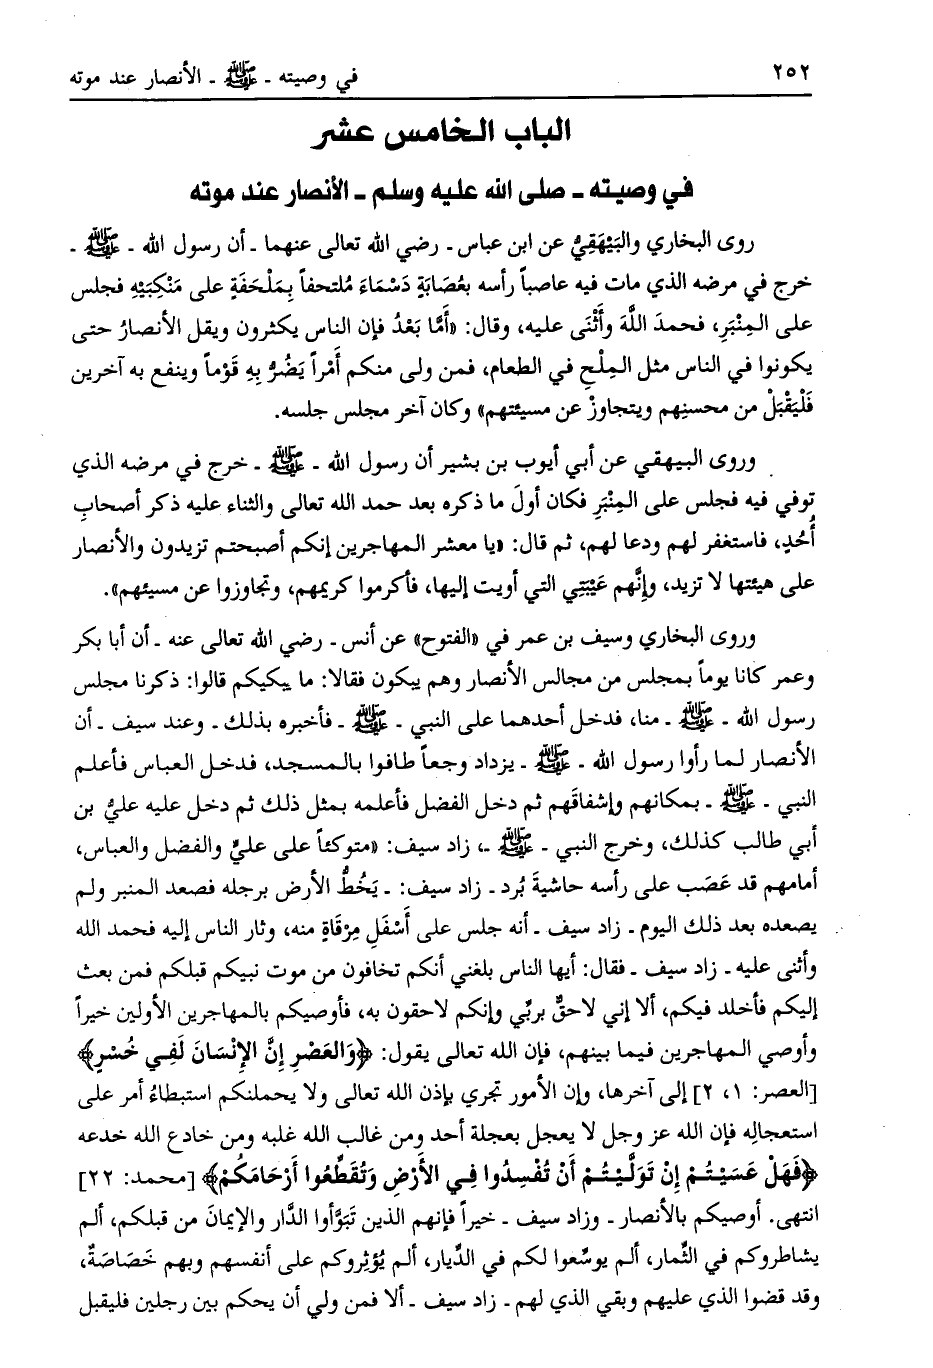 ٢٥٢ في وصيته ـ ﷺ ـ الأنصار عند موته
الباب الخامس عشر
في وصيته ـ صلى الله عليه وسلم ـ الأنصار عند موته
روى البخاري والبَيْهَقِيُّ عن ابن عباس ـ رضي الله تعالى عنهما ـ أن رسول الله ـ ﷺ ـ
خرج في مرضه الذي مات فيه عاصباً رأسه بعُصَابَةٍ دَسْمَاءَ مُلتحفاً بِمَلْحَفَةٍ على مَنْكِبَيْهِ فجلس
على المِنْبَرِ، فحمدَ اللَّهَ وأَثْنَى عليه، وقال: «أَمَّا بَعْدُ فإن الناس يكثرون ويقل الأنصارُ حتى
يكونوا في الناس مثل المِلْحِ في الطعام، فمن ولى منكم أَمْراً يَضُرُّ بِهِ قَوْماً وينفع به آخرين
فَلْيَقْبَلْ من محسنِهم ويتجاوزْ عن مسيئتهم» وكان آخر مجلس جلسه.
وروى البيهقي عن أبي أيوب بن بشير أن رسول الله ـ ﷺ ـ خرج في مرضه الذي
توفي فيه فجلس على المِنْبَرِ فكان أولَ ما ذكره بعد حمد الله تعالى والثناء عليه ذكر أصحابِ
أُحُدٍ، فاستغفر لهم ودعا لهم، ثم قال: «يا معشر المهاجرين إنكم أصبحتم تزيدون والأنصار
على هيئتها لا تزيد، وإنَّهم عَيْبَتِي التي أويت إليها، فأكرموا كريمهم، وتجاوزوا عن مسيئهم».
وروى البخاري وسيف بن عمر في «الفتوح» عن أنس ـ رضي الله تعالى عنه ـ أن أبا بكر
وعمر كانا يوماً بمجلس من مجالس الأنصار وهم يبكون فقالا: ما يبكيكم قالوا: ذكرنا مجلس
رسول الله ـ ﷺ ـ منا، فدخل أحدهما على النبي ـ ﷺ ـ فأخبره بذلك ـ وعند سيف ـ أن
الأنصار لما رأوا رسول الله ـ ﷺ ـ يزداد وجعاً طافوا بالمسجد، فدخل العباس فأعلم
النبي ـ ﷺ ـ بمكانهم وإشفاقَهم ثم دخل الفضل فأعلمه بمثل ذلك ثم دخل عليه عليُّ بن
أبي طالب كذلك، وخرج النبي ـ ﷺ ـ، زاد سيف: «متوكئاً على عليٍّ والفضل والعباس،
أمامهم قد عَصَب على رأسه حاشيةَ بُرد ـ زاد سيف: ـ يَخُطُّ الأرض برجله فصعد المنبر ولم
يصعده بعد ذلك اليوم ـ زاد سيف ـ أنه جلس على أَسْفَلِ مِرْقَاةٍ منه، وثار الناس إليه فحمد الله
وأثنى عليه ـ زاد سيف ـ فقال: أيها الناس بلغني أنكم تخافون من موت نبيكم قبلكم فمن بعث
إليكم فأخلد فيكم، ألا إني لاحقٌ بربِّي وإنكم لاحقون به، فأوصيكم بالمهاجرين الأولين خيراً
وأوصي المهاجرين فيما بينهم، فإن الله تعالى يقول: ﴿وَالعَصْرِ إنَّ الإنْسَانَ لَفِي خُسْرٍ﴾
[العصر: ١، ٢] إلى آخرها، وإن الأمور تجري بإذن الله تعالى ولا يحملنكم استبطاءُ أمر على
استعجالِه فإن الله عز وجل لا يعجل بعجلة أحد ومن غالب الله غلبه ومن خادع الله خدعه
﴿فَهَلْ عَسَيْتُمْ إنْ تَوَلَّيْتُمْ أنْ تُفْسِدُوا فِي الأَرْضِ وَتُقَطِّعُوا أَرْحَامَكُمْ﴾ [محمد: ٢٢]
انتهى. أوصيكم بالأنصار ـ وزاد سيف ـ خيراً فإنهم الذين تَبَوَّأوا الدَّار والإيمانَ من قبلكم، ألم
يشاطروكم في الثِّمار، ألم يوسِّعوا لكم في الدِّيار، ألم يُؤثِروكم على أنفسهم وبهم خَصَاصَةٌ،
وقد قضوا الذي عليهم وبقي الذي لهم ـ زاد سيف ـ ألا فمن ولي أن يحكم بين رجلين فليقبل